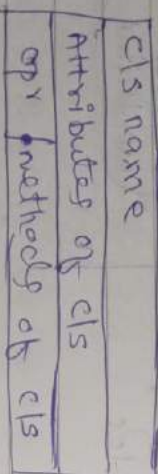 cls name
Attributes of cls
opr methods of cls